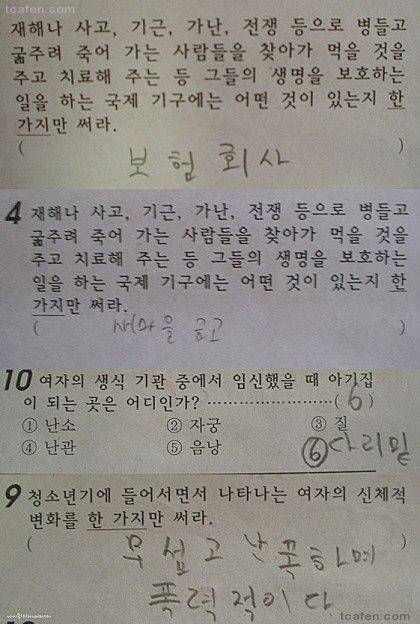 tcafen.com
재해나 사고, 기근, 가난, 전쟁 등으로 병들고
굶주려 죽어 가는 사람들을 찾아가 먹을 것을
주고 치료해 주는 등 그들의 생명을 보호하는
일을 하는 국제 기구에는 어떤 것이 있는지 한
가지만 써라.
( 보험회사 )
4 재해나 사고, 기근, 가난, 전쟁 등으로 병들고
굶주려 죽어 가는 사람들을 찾아가 먹을 것을
주고 치료해 주는 등 그들의 생명을 보호하는
일을 하는 국제 기구에는 어떤 것이 있는지 한
가지만 써라.
( 새마을 금고 )
10 여자의 생식 기관 중에서 임신했을 때 아기집
이 되는 곳은 어디인가? ························( 6 )
① 난소 ② 자궁 ③ 질
④ 난관 ⑤ 음낭 ⑥ 다리밑
9 청소년기에 들어서면서 나타나는 여자의 신체적
변화를 한 가지만 써라.
( 무섭고 난폭하며 )
폭력적이다
tcafen.com